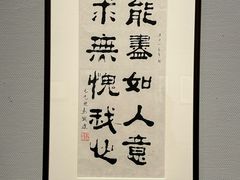 能盡如人意
求無愧我心